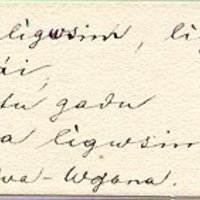 ligwsim, li
ái,
tu gadu
a ligwsim
wa-Wgana.